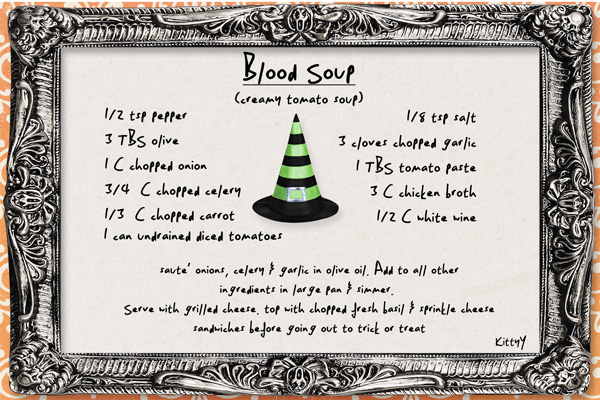 Blood Soup
(creamy tomato soup)
1/2 tsp pepper
3 TBS olive
1 C chopped onion
3/4 C chopped celery
1/3 C chopped carrot
1 can undrained diced tomatoes
1/8 tsp salt
3 cloves chopped garlic
1 TBS tomato paste
3 C chicken broth
1/2 C white wine
saute' onions, celery & garlic in olive oil. Add to all other
ingredients in large pan & simmer.
Serve with grilled cheese. top with chopped fresh basil & sprinkle cheese
sandwiches before going out to trick or treat
KittyY